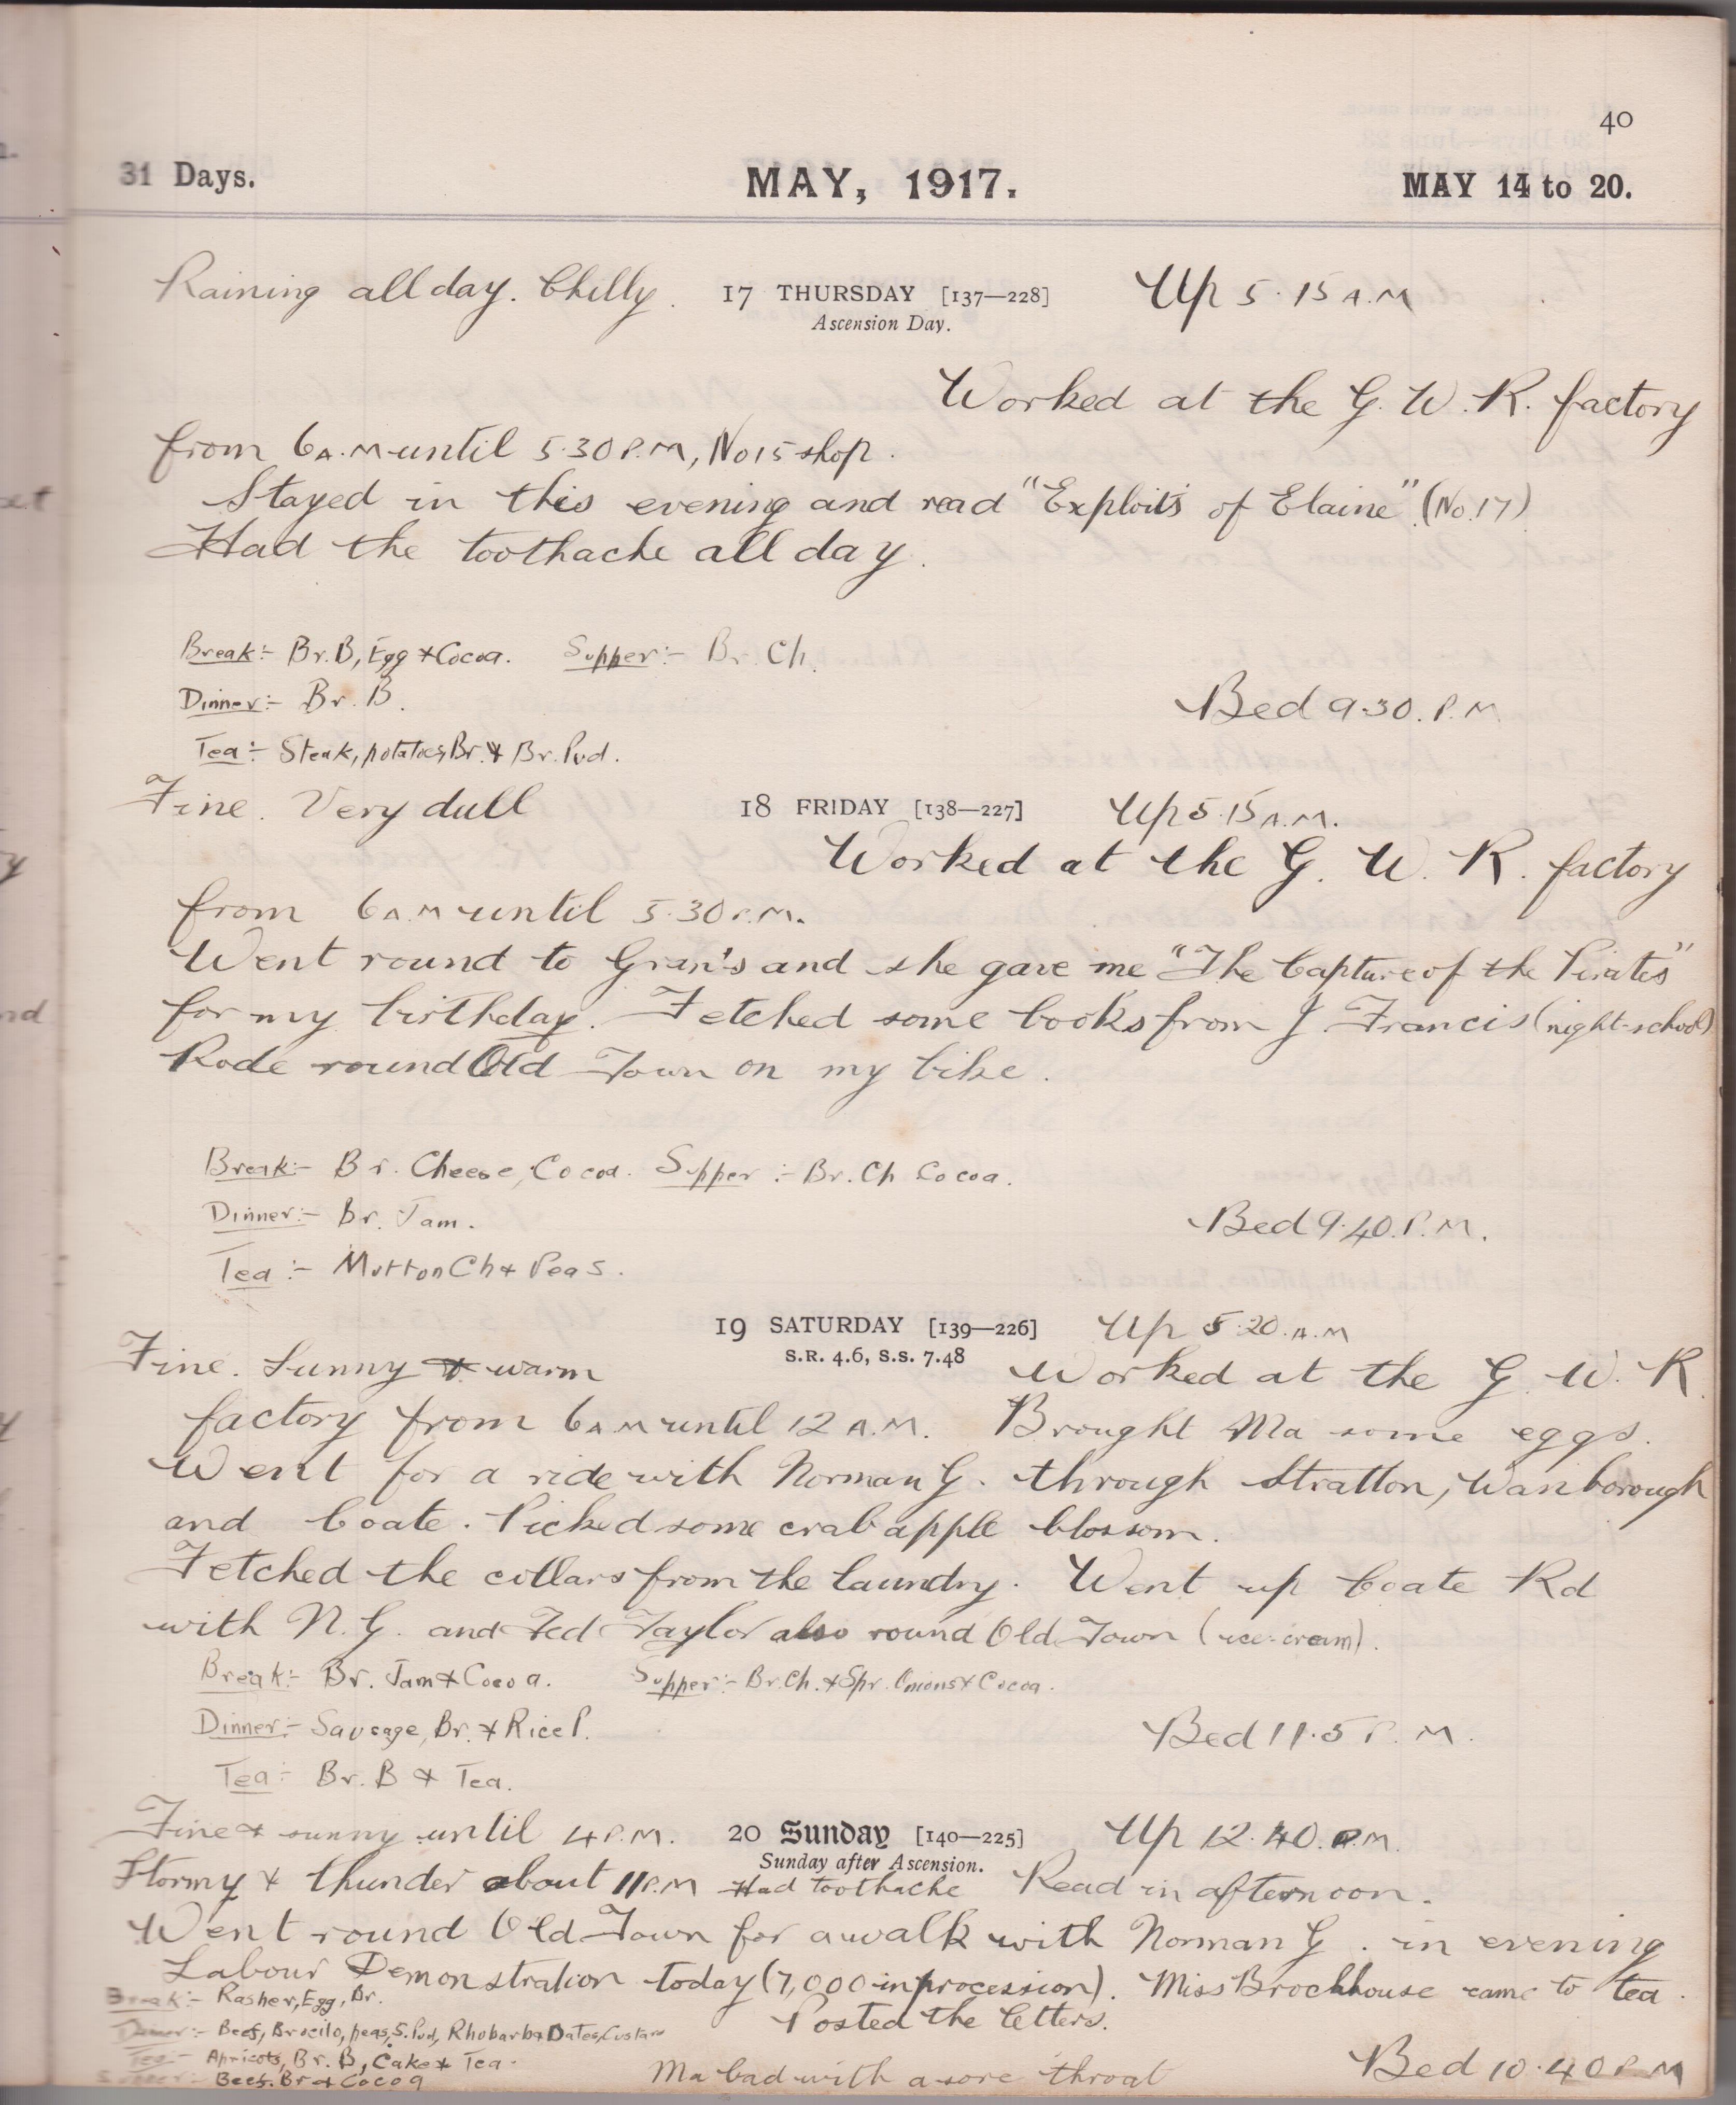 40
31 Days. MAY, 1917. MAY 14 to 20.
Raining all day. Chilly. 17 THURSDAY [137—228] Up 5.15 A.M
Ascension Day.
Worked at the G. W. R. factory
from 6 A.M until 5.30 P.M, No 15 shop.
Stayed in this evening and read "Exploits of Elaine" (No. 17)
Had the toothache all day.
Break:- Br. B, Egg & Cocoa. Supper:- Br. Ch.
Dinner:- Br. B.
Bed 9.30. P.M
Tea:- Steak, potatoes, Br. & Br. Pud.
Fine. Very dull 18 FRIDAY [138—227] Up 5.15 A.M.
Worked at the G. W. R. factory
from 6 A.M until 5.30 P.M.
Went round to Gran's and she gave me "The Capture of the Pirates"
for my birthday. Fetched some books from J. Francis (night-school)
Rode round Old Town on my bike.
Break:- Br. Cheese, Cocoa. Supper:- Br. Ch Cocoa.
Dinner:- Br. Jam.
Bed 9.40. P.M.
Tea:- Mutton Ch & Peas.
19 SATURDAY [139—226] Up 5.20. A.M
S.R. 4.6, S.S. 7.48
Fine. Sunny & warm Worked at the G. W. R.
factory from 6 A.M until 12 A.M. Brought Ma some eggs.
Went for a ride with Norman G. through Stratton, Wanborough
and Coate. Picked some crab apple blossom.
Fetched the collars from the laundry. Went up Coate Rd
with N. G. and Ted Taylor also round Old Town (ice-cream).
Break:- Br. Jam & Cocoa. Supper:- Br. Ch. & Spr. Onions & Cocoa.
Dinner:- Sausage, Br. & Rice P.
Bed 11.5 P.M.
Tea:- Br. B & Tea.
Fine & sunny until 4 P.M. 20 Sunday [140—225] Up 12.40. P.M.
Sunday after Ascension.
Stormy & thunder about 11 P.M Had toothache Read in afternoon.
Went round Old Town for a walk with Norman G. in evening
Labour Demonstration today (7,000 in procession). Miss Brockhouse came to tea.
Break:- Rasher, Egg, Br.
Posted the letters.
Dinner:- Beef, Brocilo, peas, S. Pud, Rhobarb & Dates, Custard
Tea:- Apricots, Br. B, Cake & Tea.
Supper:- Beef. Br & Cocoa
Ma bad with a sore throat
Bed 10.40 P.M